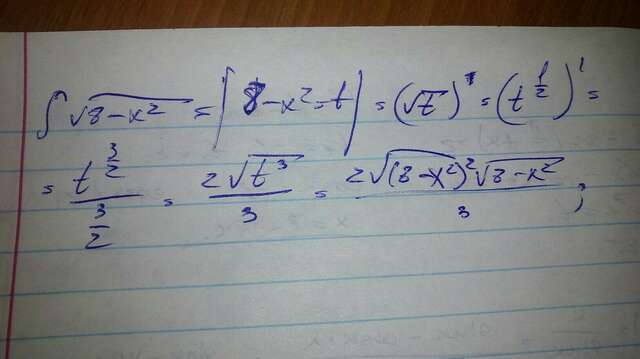 ∫ √(8-x²) = |8-x²=t| = (√t)' = (t^(1/2))' =
= t^(3/2) / (3/2) = 2√(t³) / 3 = 2√((8-x²)²) √(8-x²) / 3 ;